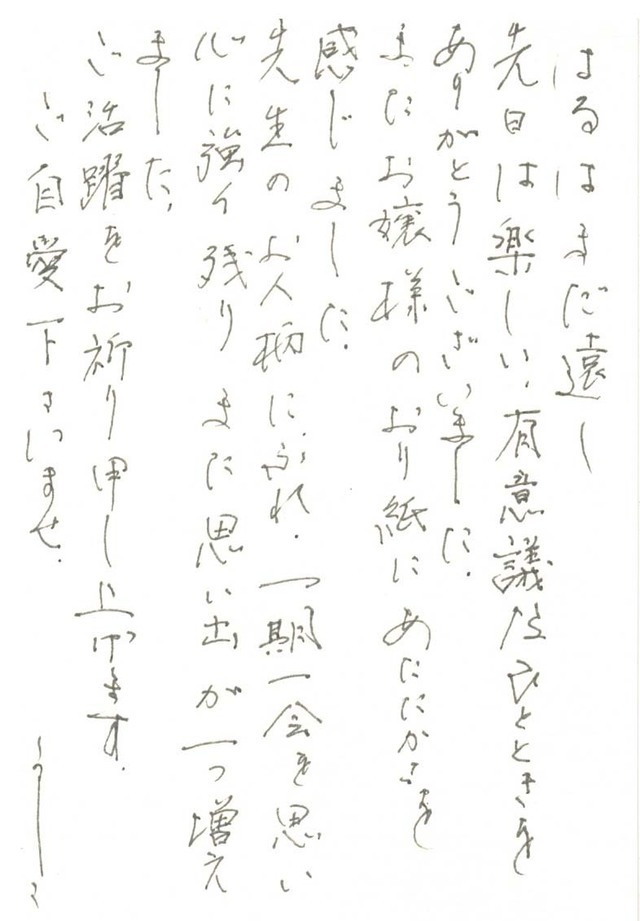 はるはまだ遠し
先日は楽しい、有意議なひとときを
ありがとうございました。
またお嬢様のおり紙にあたたかさを
感じました。
先生のお人柄にふれ、一期一会を思い
心に強く残りまた思い出が一つ増え
ました。
ご活躍をお祈り申し上げます。
ご自愛下さいませ。